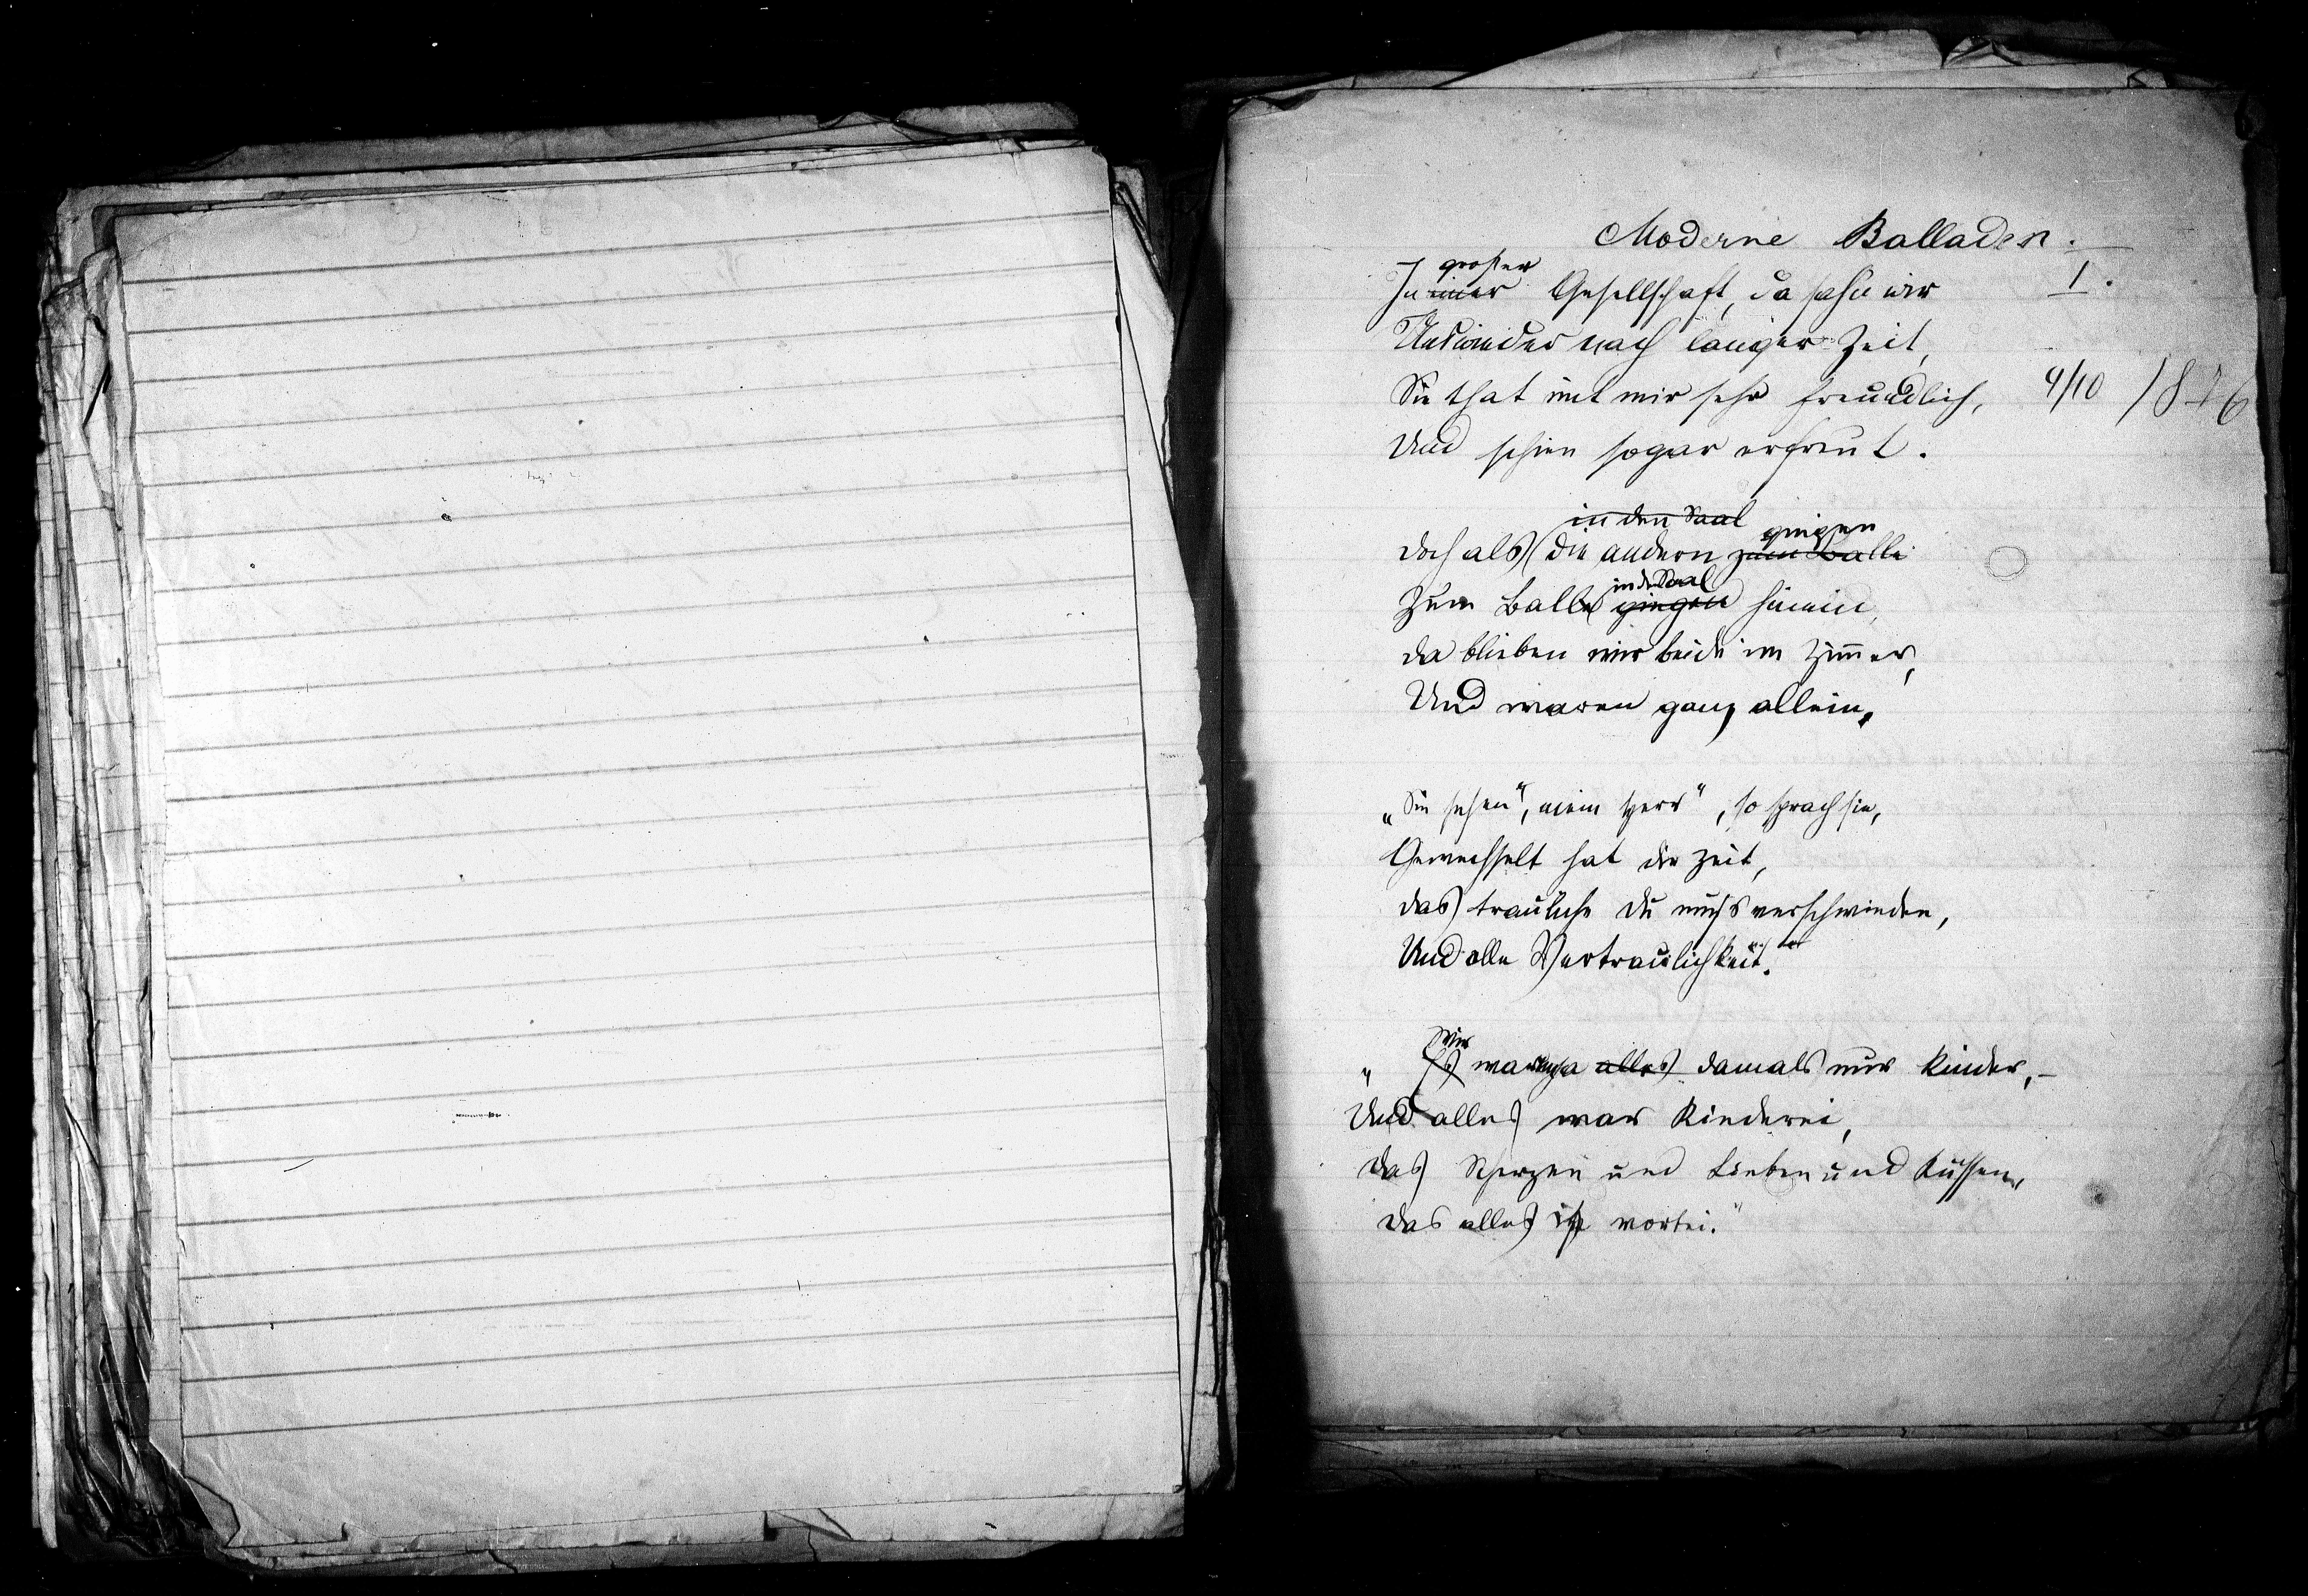 Moderne Balladen.
I.
großer
In einer Gesellschaft, da sahn wir
Uns wieder nach langer Zeit,
Sie that mit mir sehr freundlich,
4/10 1876
Und schien sogar erfreut.
in den Saal gingen
Doch als die andern zum Balle
in den Saal
Zum Balle gingen hinein,
Da blieben wir beide im Zimmer,
Und waren ganz allein.
„Sie sehen", mein Herr", so sprach sie,
Gewechselt hat die Zeit,
Das trauliche Du muss verschwinden,
Und alle Vertraulichkeit."
Wir
„ Es waren ja alles damals nur Kinder, –
Und alles war Kinderei,
Das Scherzen und Lieben und Küssen,
Das alles ist vorbei."